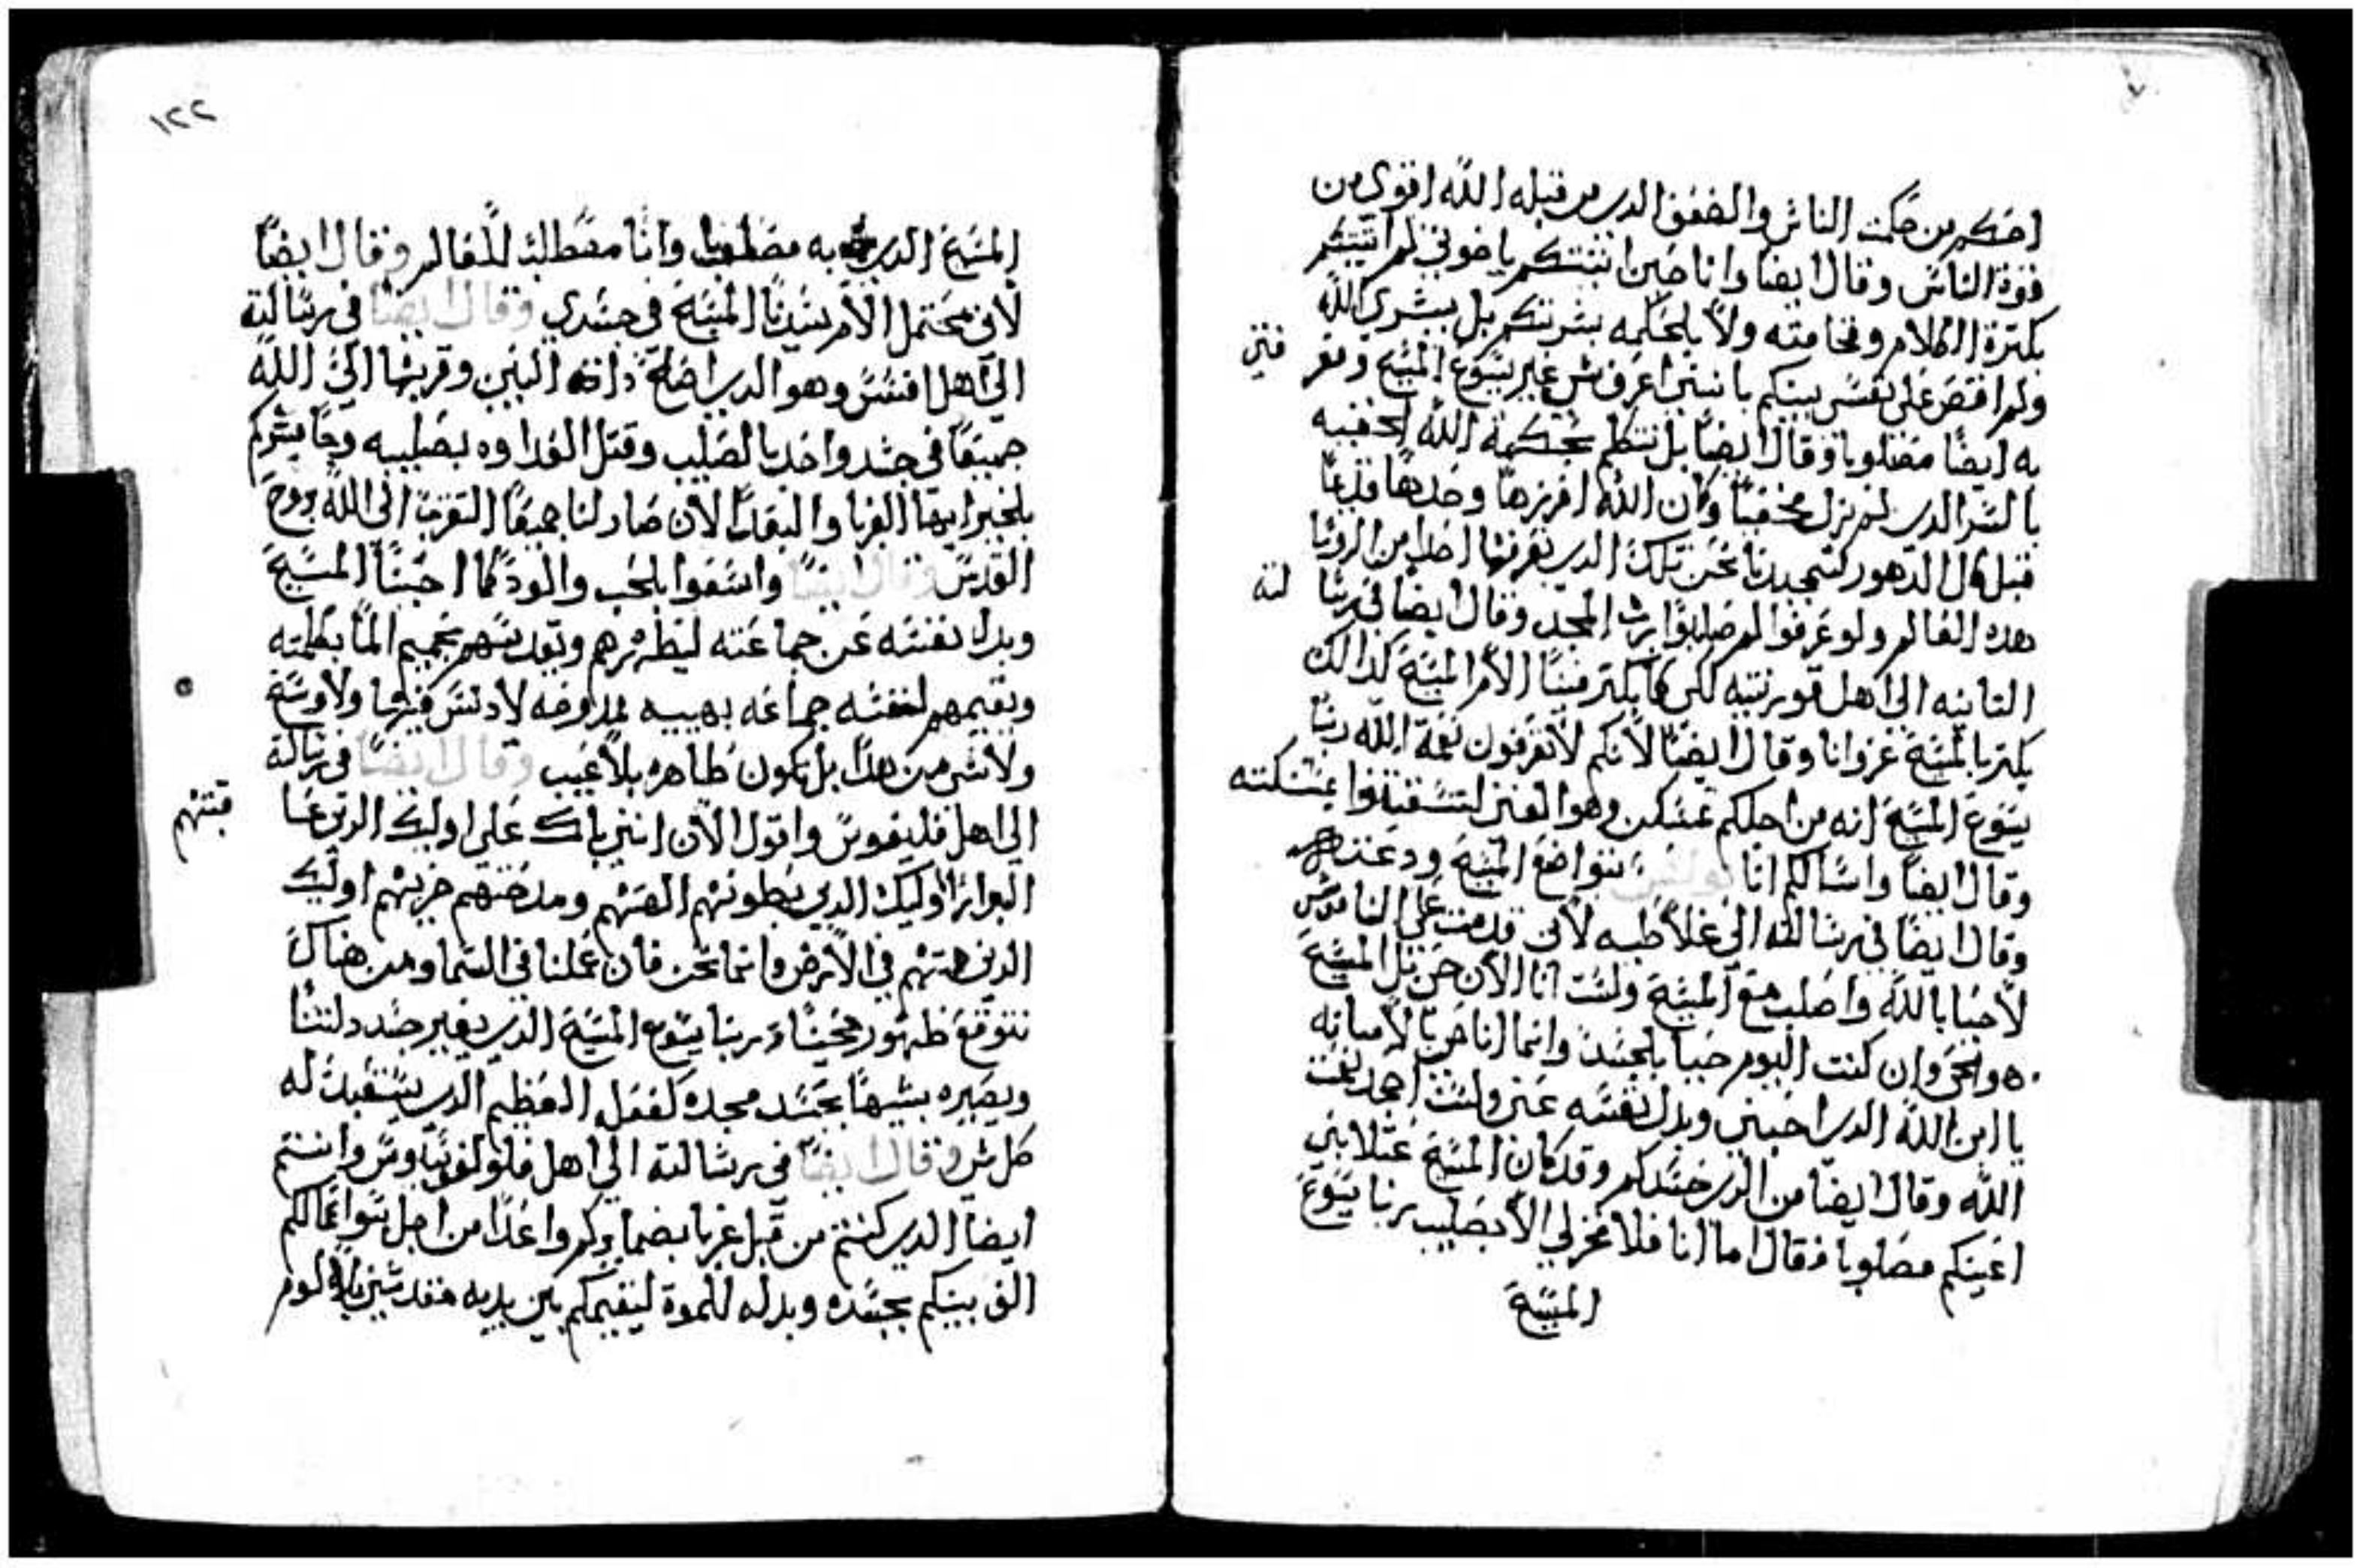 احكم من حكمت الناس والضعف الدى من قبله الله اقوى من
قوة الناس وقال ايضا وانا حين اتيتكم ياخوتي لم اتيتكم
بكترة الكلام وفخامته ولا بلحكمه بشرتكم بل ببشرى الله
ولم اقتص على نفسى بينكم باننى اعرف شى غير يسوع المسيح ومعر فتي
به ايضا مصلوبا وقال ايضا بل نتكلم بحكمة الله الخفييه
بالسر الدى لم نزل مخفيا وكان الله افرزها وحدها قديما
قبل كل الدهور لتمجيدنا نحن تلك الدى نعرفها احدا من الروسا
هده العالم ولو عرفوا لم صلبوا برب المجد وقال ايضا في رسا لته
التانيه الى اهل قورنتيه لكى كما يكتر فينا الام المسيح كدالك
يكتر بالمسيح عزوانا وقال ايضا لانكم لا تعرفون نعمة الله ربنا
يسوع المسيح انه من اجلكم تمسكن وهو الغنى لتستغنوا بمسكنته
وقال ايضا واسالكم انا بولس بتواضع المسيح ودعته
وقال ايضا في رسالته الى غلاطيه لانى قد مت على الناموس
لاحيا بالله واصلب مع المسيح ولست انا الان حى بل المسيح
هو الحى وان كنت اليوم حييا بلجسد وانما انا حى بالامانه
يا ابن الله الدى احبنى وبدل نفسه عنى ولست اجحد نعمت
الله وقال ايضا من الدى حسدكم وقد كان المسيح عتلا بني
اعينكم مصلوبا فقال اما انا فلا فخر لي الا بصليب ربنا يسوع
المسيح
١٢٢
المسيح الدى به مصلوبا وانا مصطلب للعالم وقال ايضا
لانى محتمل الام سيدنا المسيح في جسدي وقال ايضا في رسالته
الى اهل افسس وهو الدى اصلح دات البين وقربها الى الله
جميعا في جسد واحد بالصليب وقتل العداوه بصليبه وجا يبشركم
بلخير ايها القربا والبعدا لان صار لنا جميعا التقرب الى الله بروح
القدس وقال ايضا واسعوا بلحب والود كما احبنا المسيح
وبدل نفسه عن جماعته ليطهرهم ويقدسهم بحميم الما بكلمته
ويقيمهم لنفسه جماعه بهييه لا دنس فيها ولا وسخ
ولا شى من هدا بل تكون طاهره بلا عيب وقال ايضا في رسالته
الى اهل فليفوس واقول الان انني باك على اوليك الدين عا قبتهم
البوار اوليك الدي بطونهم الههم ومدحتهم خزيهم اوليك
الدين همتهم في الارض وانما نحن فان عملنا في السما ومن هناك
نتوقع ظهور محيينا ربنا يسوع المسيح الدى يغير جسد دلتنا
ويصيره شبيها بجسد مجده كفعل العظيم الدى يستعبد له
كل شى وقال ايضا في رسالته الى اهل قولوسايس وانتم
ايضا الدى كنتم من قبل غربا بضمايركم واعدا من اجل سو اعمالكم
الف بينكم بجسده وبدله للموة ليقيمكم بين يديه مقدسين بلا لوم